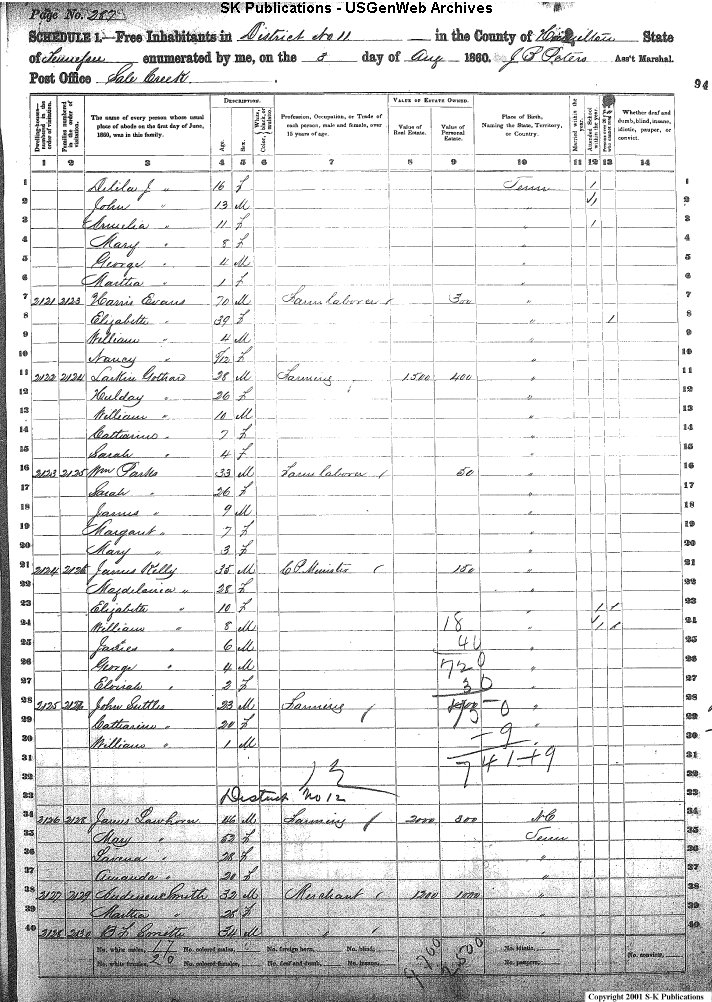 SK Publications - USGenWeb Archives
Page No. 287
SCHEDULE 1.—Free Inhabitants in District No 11 in the County of Hamilton State
of Tennessee enumerated by me, on the 8 day of Aug 1860. J B Peters Ass't Marshal.
Post Office Sale Creek
94
Dwelling-houses—numbered in the order of visitation.
Families numbered in the order of visitation.
The name of every person whose usual place of abode on the first day of June, 1860, was in this family.
DESCRIPTION.
Age.
Sex.
Color, White, black, or mulatto.
Profession, Occupation, or Trade of each person, male and female, over 15 years of age.
VALUE OF ESTATE OWNED.
Value of Real Estate.
Value of Personal Estate.
Place of Birth, Naming the State, Territory, or Country.
Married within the year.
Attended School within the year.
Whether deaf and dumb, blind, insane, idiotic, pauper, or convict.
1 2 3 4 5 6 7 8 9 10 11 12 13 14
1 Delila J " 16 F Tenn 1 1
2 John " 13 M 1 2
3 " 11 F " 1 3
4 Mary " 8 F " 4
5 George " 4 M " 5
6 Martha " 1 F " 6
7 2121 2123 Harris Evans 70 M Farm laborer 300 " 7
8 Elizabeth " 39 F " 1 8
9 William " 4 M " 9
10 Nancy " /12 F " 10
11 2122 2124 Larkin Gothard 28 M Farming 1500 400 " 11
12 Hulday " 26 F " 12
13 William " 10 M " 13
14 Catharine " 7 F " 14
15 Sarah " 4 F " 15
16 2123 2125 Wm Parks 33 M Farm laborer 50 " 16
17 Sarah " 26 F " 17
18 James " 9 M " 18
19 Margaret " 7 F " 19
20 Mary " 3 F " 20
21 2124 2126 James Kelly 35 M C P Minister 150 " 21
22 " 28 F " 22
23 Elizabeth " 10 F " 1 1 23
24 William " 8 M 18 " 1 24
25 James " 6 M 40 " 25
26 George " 4 M 720 " 26
27 " 2 F 30 " 27
28 2125 2127 John Suttles 23 M Farming " 28
29 Catharine " 20 F -9 " 29
30 William " 1 M 741+9 " 30
31 12 31
32 32
33 District No 12 33
34 2126 2128 James Lawhorn 46 M Farming 2000 300 NC 34
35 Mary " 52 F Tenn 35
36 Lavena " 28 F " 36
37 Amanda " 20 F " 37
38 2127 2129 Smith 32 M Merchant 1200 1000 " 38
39 Martha " 25 F " 39
40 2128 2130 34 M " " 40
No. white males, 17 No. colored males, No. foreign born, No. blind, No. idiotic, No. convicts,
No. white females, 20 No. colored females, No. deaf and dumb, No. insane, No. paupers,
2500
Copyright 2001 S-K Publications